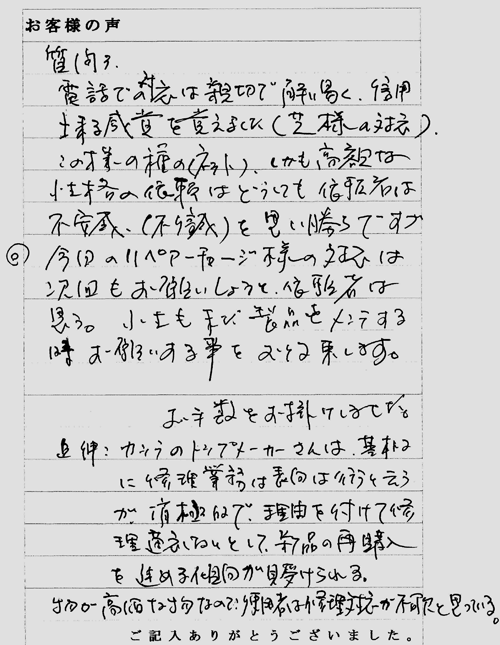 お客様の声
質問3.
電話での対応は親切で解り易く、信用
出来る感覚を覚えました(芝様の対応).
この様の種の(ネット)、しかも高額な
小生格の依頼はどうしても依頼者は
不安感、(不誠)を思い勝ちですが
◎今回のリペアーチャージ様の対応は
次回もお願いしようと、依頼者は
思う。小生も再び製品をメンテする
時お願いする事をお約束します。
お手数をお掛けしました。
追伸:カメラのトップメーカーさんは、基本的
に修理業務は表向は行うと云う
が、消極的で、理由を付けて修
理適応しないとして、新品の再購入
を進める傾向が見受けられる。
物が高価な物なので使用者は修理対応が不可欠と思っている。
ご記入ありがとうございました。